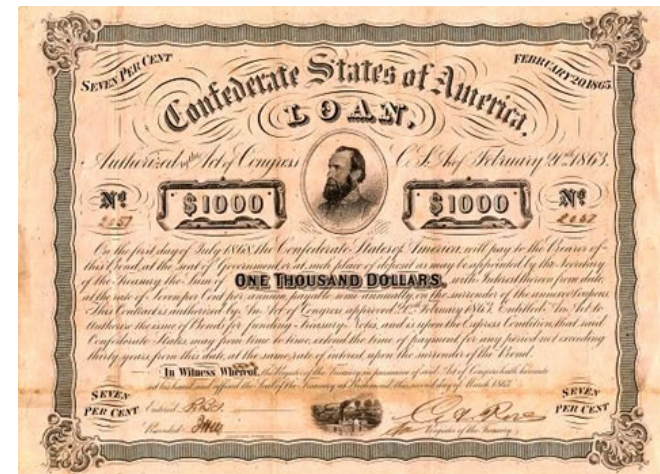 SEVEN PER CENT
FEBRUARY 20 1863.
Confederate States of America.
LOAN,
Authorized by the Act of Congress C. S. A. of February 20th 1863.
Nº $1000 $1000 Nº
On the first day of July 1868, the Confederate States of America, will pay to the Bearer of
this Bond, at the seat of Government or at such place of deposit as may be appointed by the Secretary
of the Treasury the Sum of ONE THOUSAND DOLLARS, with Interest thereon from date,
at the rate of Seven per Cent per annum, payable semi annually, on the surrender of the annexed Coupons.
This Contract is authorized by An Act of Congress approved February 1863, Entitled An Act to
Authorize the issue of Bonds for funding Treasury Notes, and is upon the Express Condition, that said
Confederate States may from time to time, extend the time of payment for any period not exceeding
thirty years from this date, at the same rate of interest upon the surrender of the Bond.
In Witness Whereof, the Register of the Treasury in pursuance of said Act of Congress hath hereunto
set his hand and affixed the Seal of the Treasury at Richmond this second day of March 1863.
SEVEN PER CENT
Entered
Recorded
Register of the Treasury
SEVEN PER CENT